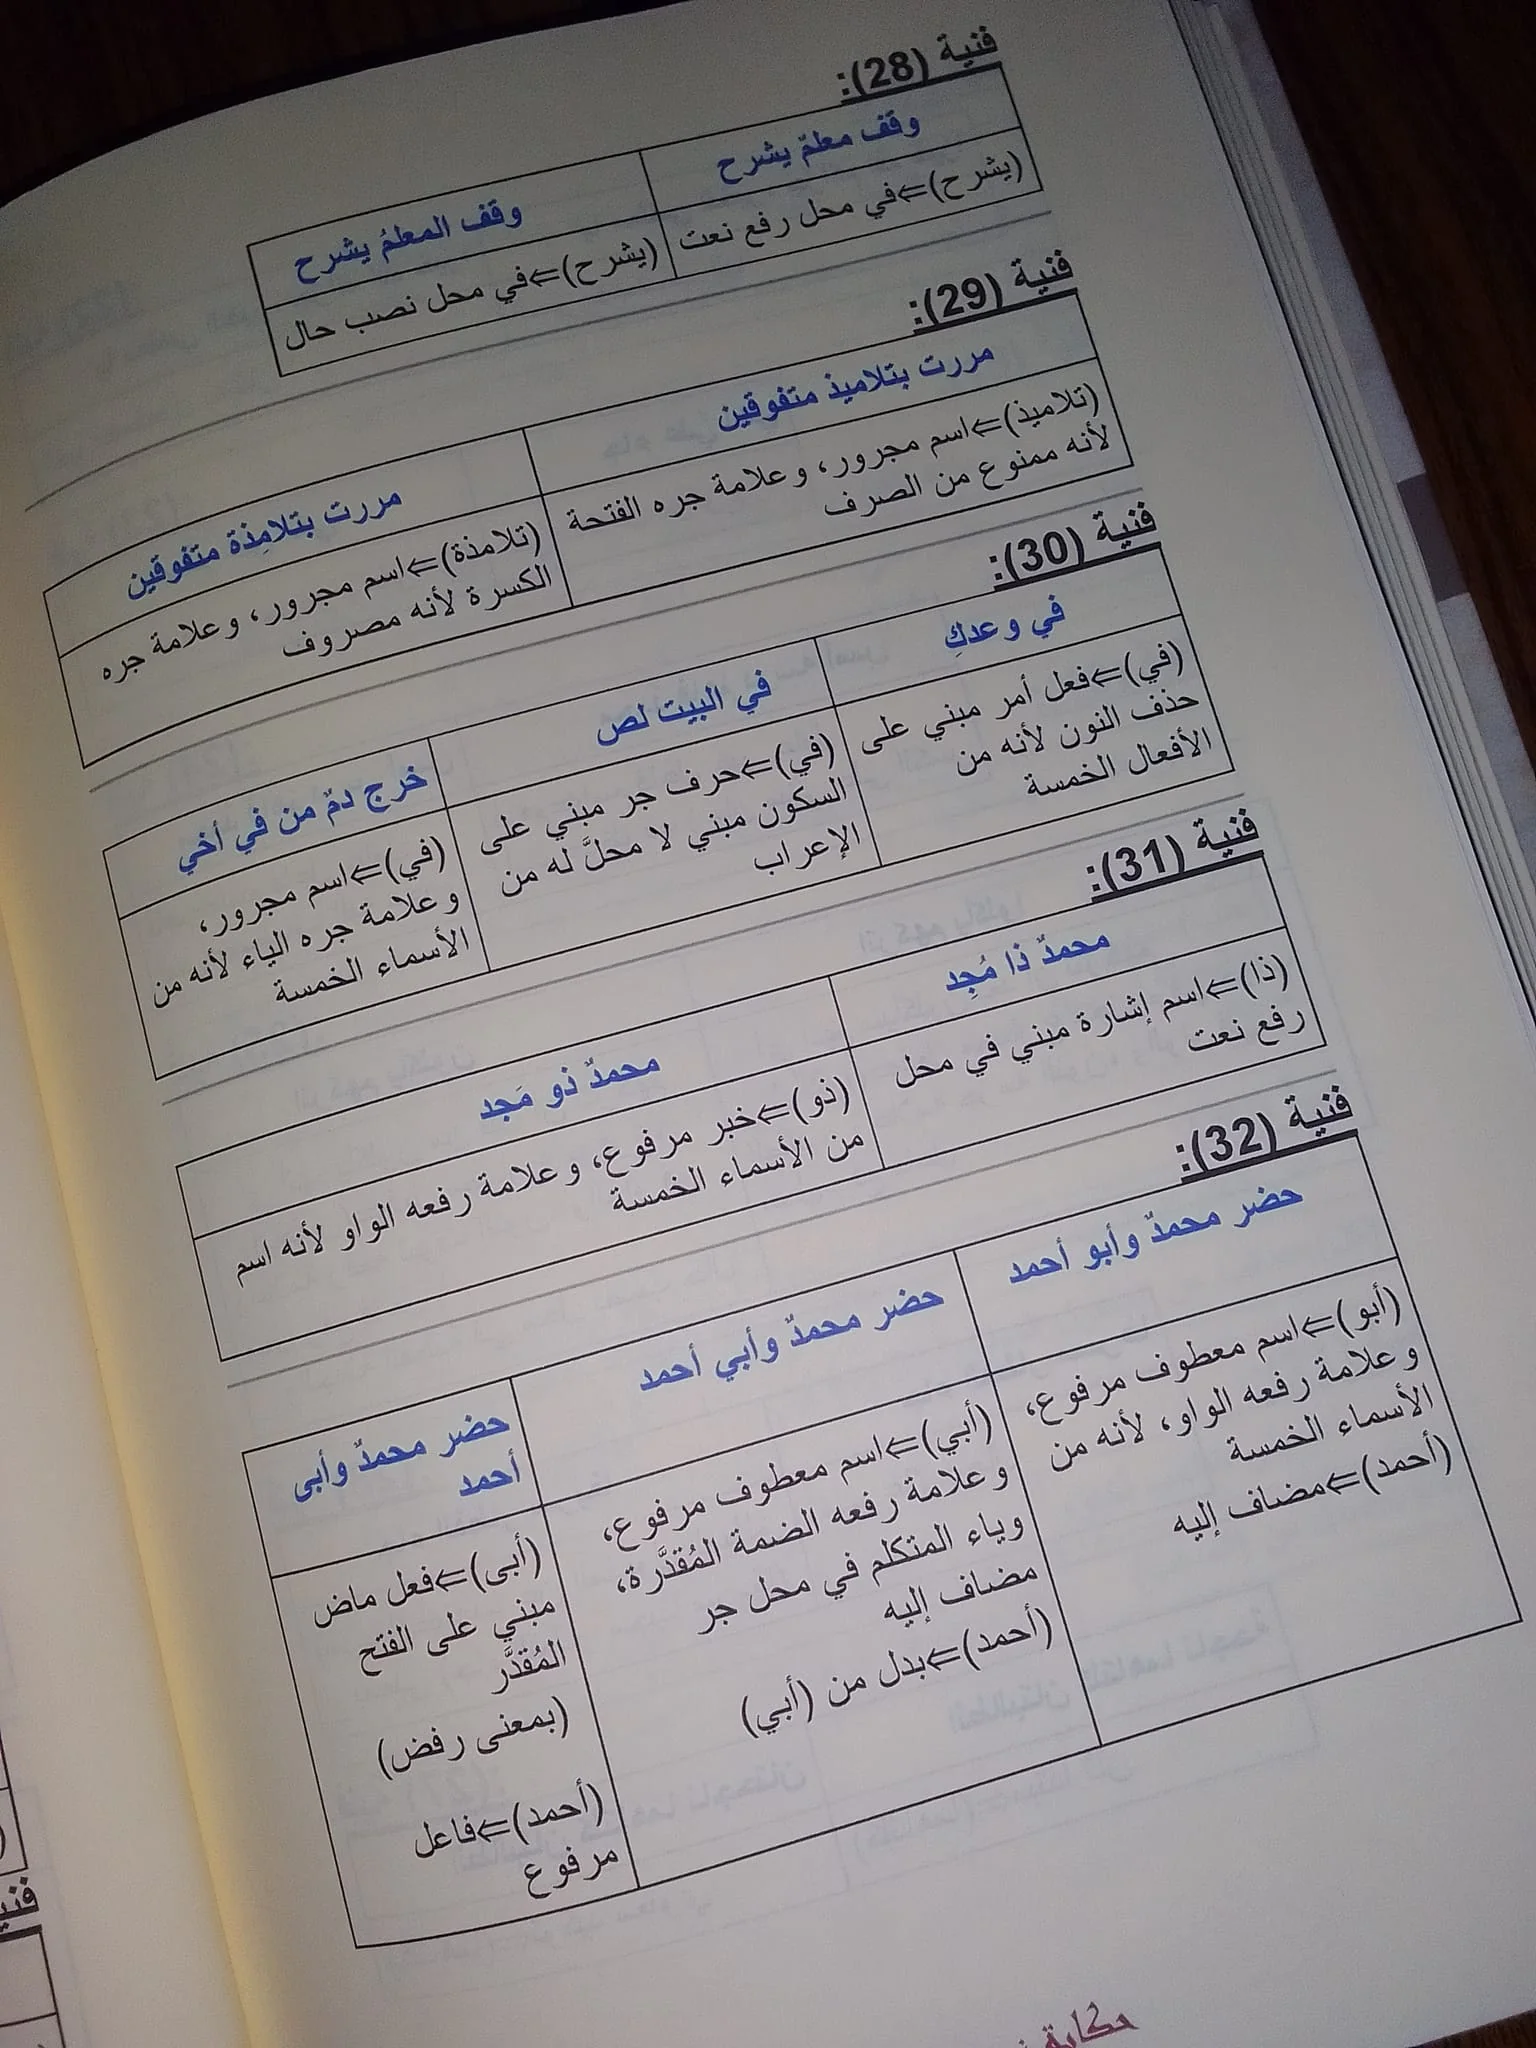 فنية (28):
وقف معلمٌ يشرح
وقف المعلمُ يشرح
(يشرح)⇐في محل رفع نعت
(يشرح)⇐في محل نصب حال
فنية (29):
مررت بتلاميذ متفوقين
مررت بتلامِذة متفوقين
(تلاميذ)⇐اسم مجرور، وعلامة جره الفتحة
لأنه ممنوع من الصرف
(تلامذة)⇐اسم مجرور، وعلامة جره
الكسرة لأنه مصروف
فنية (30):
في وعدكِ
في البيت لص
خرج دمٌ من في أخي
(في)⇐فعل أمر مبني على
حذف النون لأنه من
الأفعال الخمسة
(في)⇐حرف جر مبني على
السكون مبني لا محلَّ له من
الإعراب
(في)⇐اسم مجرور،
وعلامة جره الياء لأنه من
الأسماء الخمسة
فنية (31):
محمدٌ ذا مُجِد
محمدٌ ذو مَجد
(ذا)⇐اسم إشارة مبني في محل
رفع نعت
(ذو)⇐خبر مرفوع، وعلامة رفعه الواو لأنه اسم
من الأسماء الخمسة
فنية (32):
حضر محمدٌ وأبو أحمد
حضر محمدٌ وأبي أحمد
حضر محمدٌ وأبى
أحمد
(أبو)⇐اسم معطوف مرفوع،
وعلامة رفعه الواو، لأنه من
الأسماء الخمسة
(أحمد)⇐مضاف إليه
(أبي)⇐اسم معطوف مرفوع،
وعلامة رفعه الضمة المُقدَّرة،
وياء المتكلم في محل جر
مضاف إليه
(أحمد)⇐بدل من (أبي)
(أبى)⇐فعل ماض
مبني على الفتح
المُقدَّر
(بمعنى رفض)
(أحمد)⇐فاعل
مرفوع
حكاية